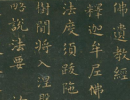 佛遺教經
釋迦牟尼佛
法度須跋陀
樹間將入涅
略說法要